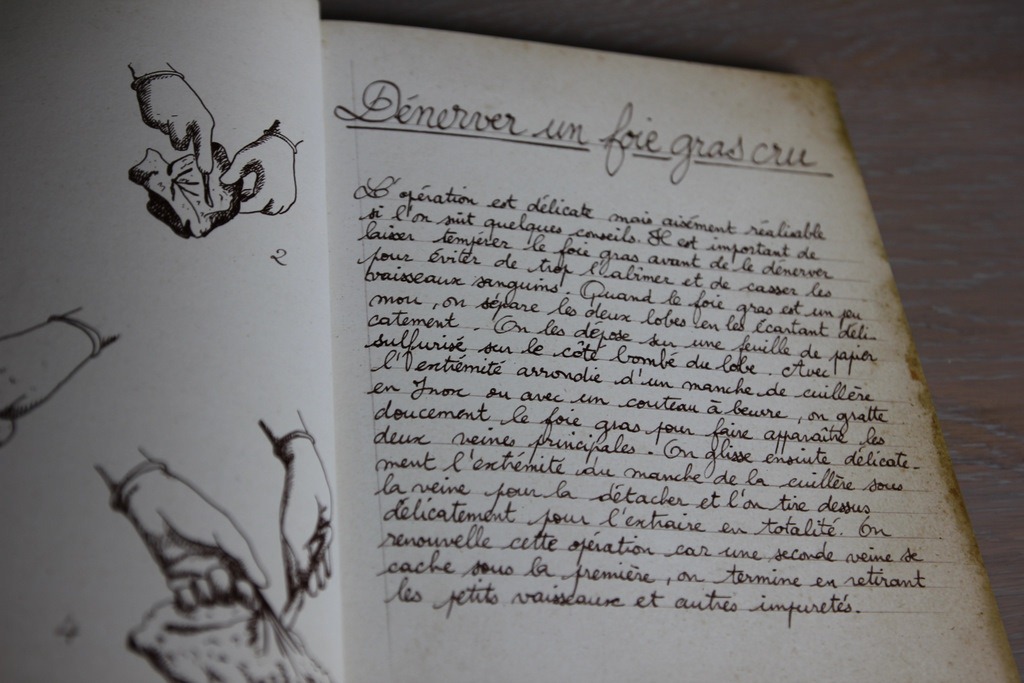 2
4
Dénerver un foie gras cru
L'opération est délicate mais aisément réalisable
si l'on suit quelques conseils. Il est important de
laisser tempérer le foie gras avant de le dénerver
pour éviter de trop l'abîmer et de casser les
vaisseaux sanguins. Quand le foie gras est un peu
mou, on sépare les deux lobes en les écartant déli-
catement. On les dépose sur une feuille de papier
sulfurisé sur le côté bombé du lobe. Avec
l'extrémité arrondie d'un manche de cuillère
en Inox ou avec un couteau à beurre, on gratte
doucement le foie gras pour faire apparaître les
deux veines principales. On glisse ensuite délicate-
ment l'extrémité du manche de la cuillère sous
la veine pour la détacher et l'on tire dessus
délicatement pour l'extraire en totalité. On
renouvelle cette opération car une seconde veine se
cache sous la première, on termine en retirant
les petits vaisseaux et autres impuretés.